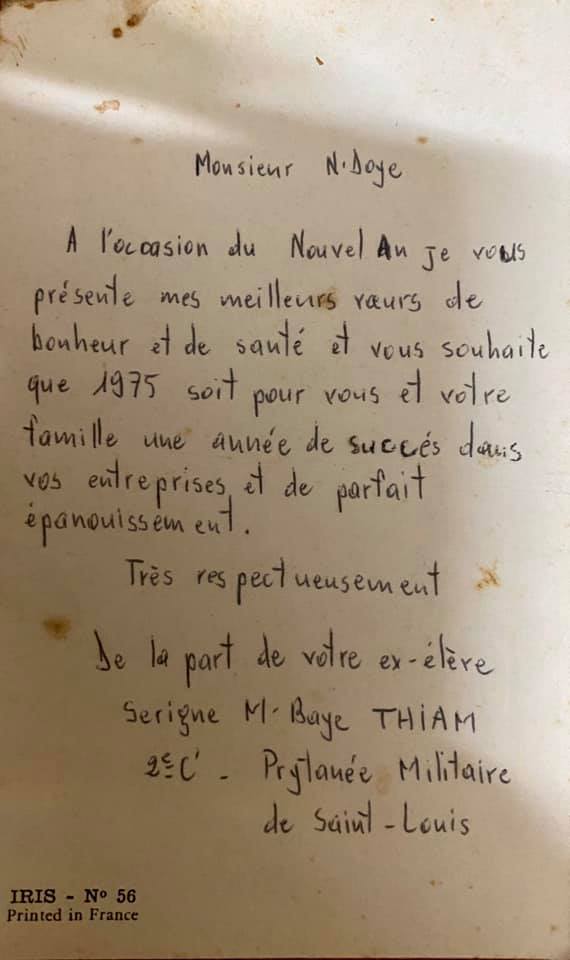 Monsieur N'Doye
A l'occasion du Nouvel An je vous
présente mes meilleurs vœurs de
bonheur et de santé et vous souhaite
que 1975 soit pour vous et votre
famille une année de succés dans
vos entreprises et de parfait
épanouissement.
Très respectueusement
De la part de votre ex-élève
Serigne M'Baye THIAM
2e C' - Prytanée Militaire
de Saint-Louis
IRIS - No 56
Printed in France